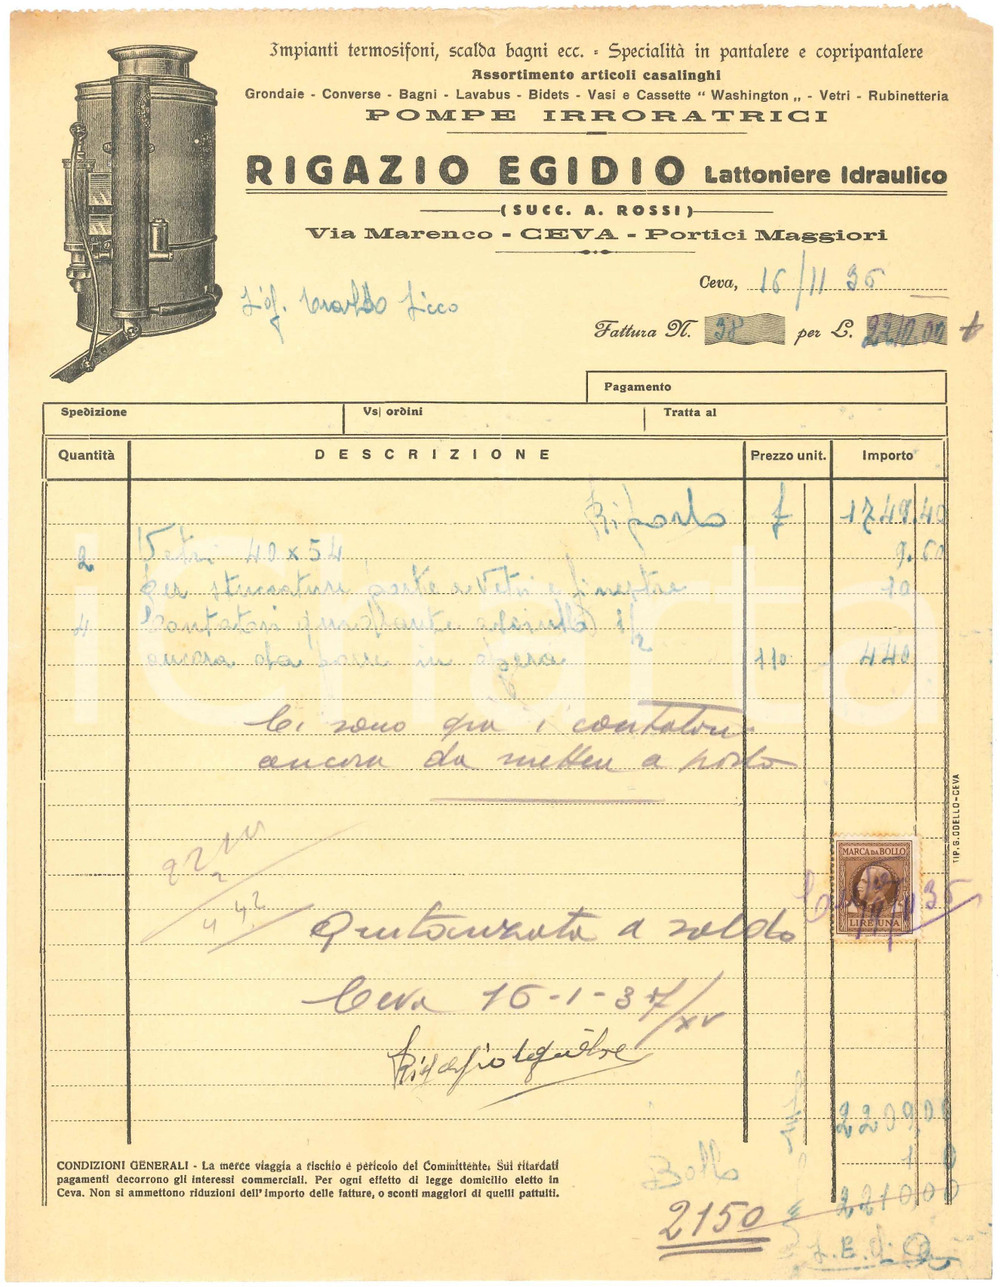 Impianti termosifoni, scalda bagni ecc. - Specialità in pantalere e copripantalere
Assortimento articoli casalinghi
Grondaie - Converse - Bagni - Lavabus - Bidets - Vasi e Cassette " Washington „ - Vetri - Rubinetteria
POMPE IRRORATRICI
RIGAZIO EGIDIO Lattoniere Idraulico
(SUCC. A. ROSSI)
Via Marenco - CEVA - Portici Maggiori
Ceva, 16/11 36
Sig.
Fattura N. 38 per L. 2210.00
Pagamento
Spedizione Vs| ordini Tratta al
Quantità DESCRIZIONE Prezzo unit. Importo
Riporto £ 1749.40
2 Vetri 40 x 54 9.60
per stuccature porte e vetri e finestre 10
4 Contatori
ancora da porre in opera 110 440
Ci sono qua i contatori
ancora da metter a posto
MARCA DA BOLLO
LIRE UNA
442
Quitanzata a saldo
Ceva 16-1-37/XV
2209,00
Bollo 1 0
2210,00
2150
CONDIZIONI GENERALI - La merce viaggia a rischio e pericolo del Committente. Sui ritardati
pagamenti decorrono gli interessi commerciali. Per ogni effetto di legge domicilio eletto in
Ceva. Non si ammettono riduzioni dell'importo delle fatture, o sconti maggiori di quelli pattuiti.
TIP. G. ODELLO-CEVA
iCharta